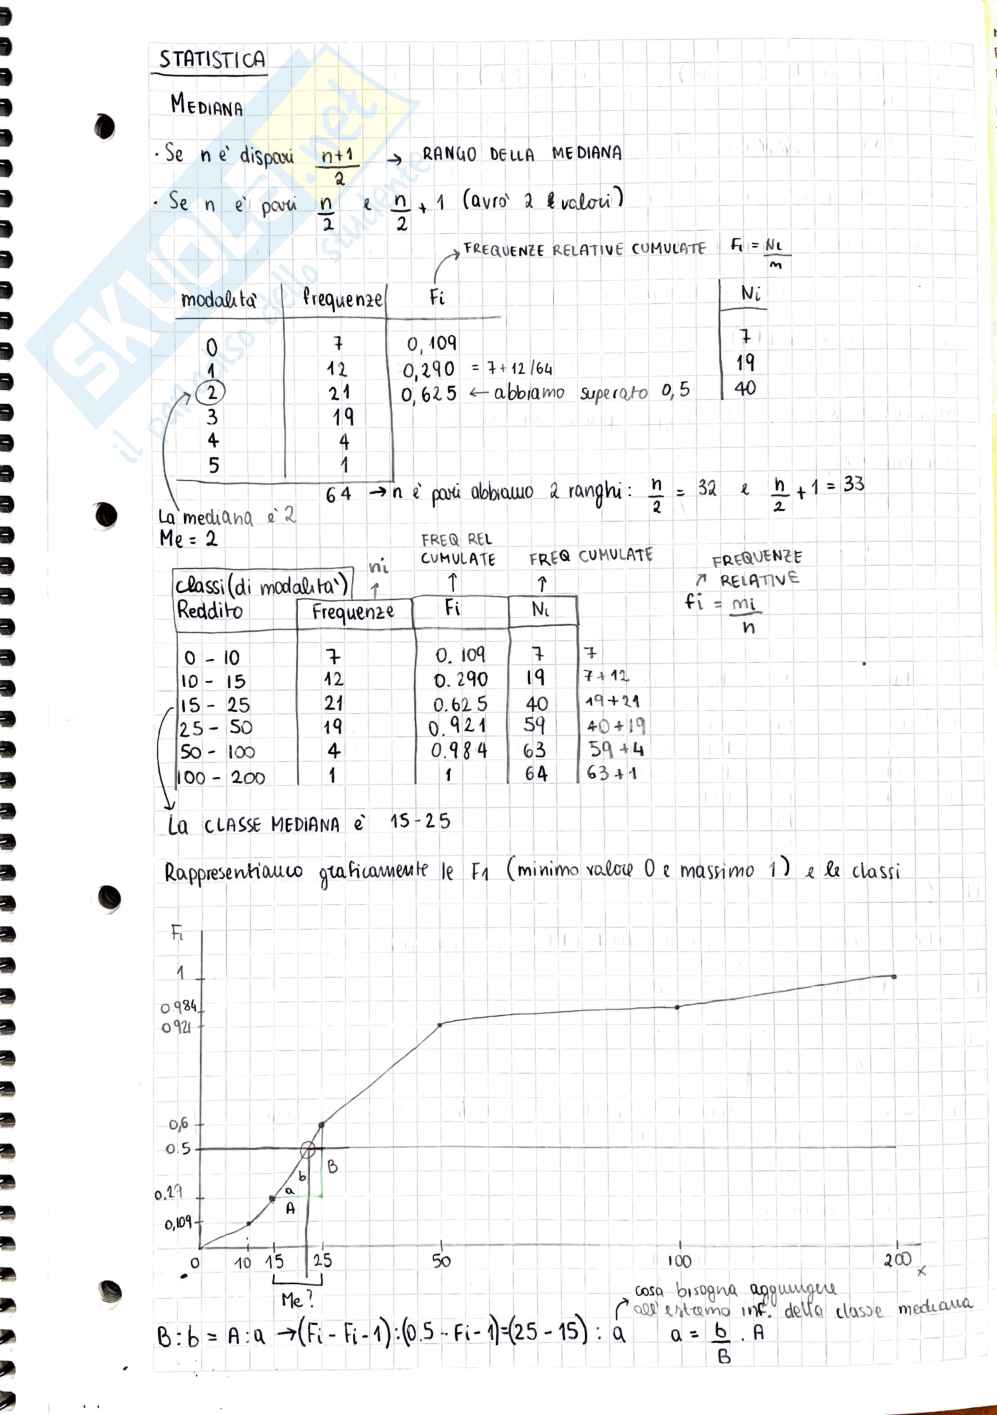 STATISTICA
MEDIANA
· Se n è dispari n+1/2 → RANGO DELLA MEDIANA
· Se n è pari n/2 e n/2 + 1 (avrò 2 valori)
FREQUENZE RELATIVE CUMULATE Fi = Ni/n
modalità frequenze Fi Ni
0 7 0,109 7
1 12 0,290 = 7+12/64 19
2 21 0,625 ← abbiamo superato 0,5 40
3 19
4 4
5 1
64 → n è pari abbiamo 2 ranghi: n/2 = 32 e n/2 + 1 = 33
La mediana è 2
Me = 2
FREQ REL CUMULATE
FREQ CUMULATE
FREQUENZE RELATIVE
fi = ni/n
ni
classi (di modalità)
Reddito Frequenze Fi Ni
0 - 10 7 0.109 7 7
10 - 15 12 0.290 19 7+12
15 - 25 21 0.625 40 19+21
25 - 50 19 0.921 59 40+19
50 - 100 4 0.984 63 59+4
100 - 200 1 1 64 63+1
La CLASSE MEDIANA è 15-25
Rappresentiamo graficamente le F1 (minimo valore 0 e massimo 1) e le classi
Fi
1
0984
0921
0,6
0.5
0.29
0,109
b B
a
A
0 10 15 25 50 100 200 x
Me?
cosa bisogna aggiungere
all'estremo inf. della classe mediana
B : b = A : a → (Fi - Fi-1) : (0.5 - Fi-1) = (25 - 15) : a a = b/B . A
SKUOLA.net
il paradiso dello studente